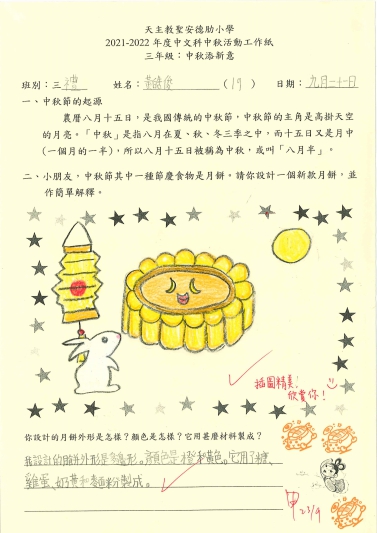 天主教聖安德肋小學
2021-2022 年度中文科中秋活動工作紙
三年級：中秋添新意
班別：三 禮 姓名： ( 19 ) 日期：九月二十一日
一、中秋節的起源
農曆八月十五日，是我國傳統的中秋節，中秋節的主角是高掛天空
的月亮。「中秋」是指八月在夏、秋、冬三季之中，而十五日又是月中
(一個月的一半)，所以八月十五日被稱為中秋，或叫「八月半」。
二、小朋友，中秋節其中一種節慶食物是月餅。請你設計一個新款月餅，並
作簡單解釋。
插圖精美!
欣賞你!
你設計的月餅外形是怎樣？顏色是怎樣？它用甚麼材料製成？
我設計的月餅外形是多邊形。顏色是橙和黃色。它用了糖、
雞蛋、奶黃和麵粉製成。
甲 23/9